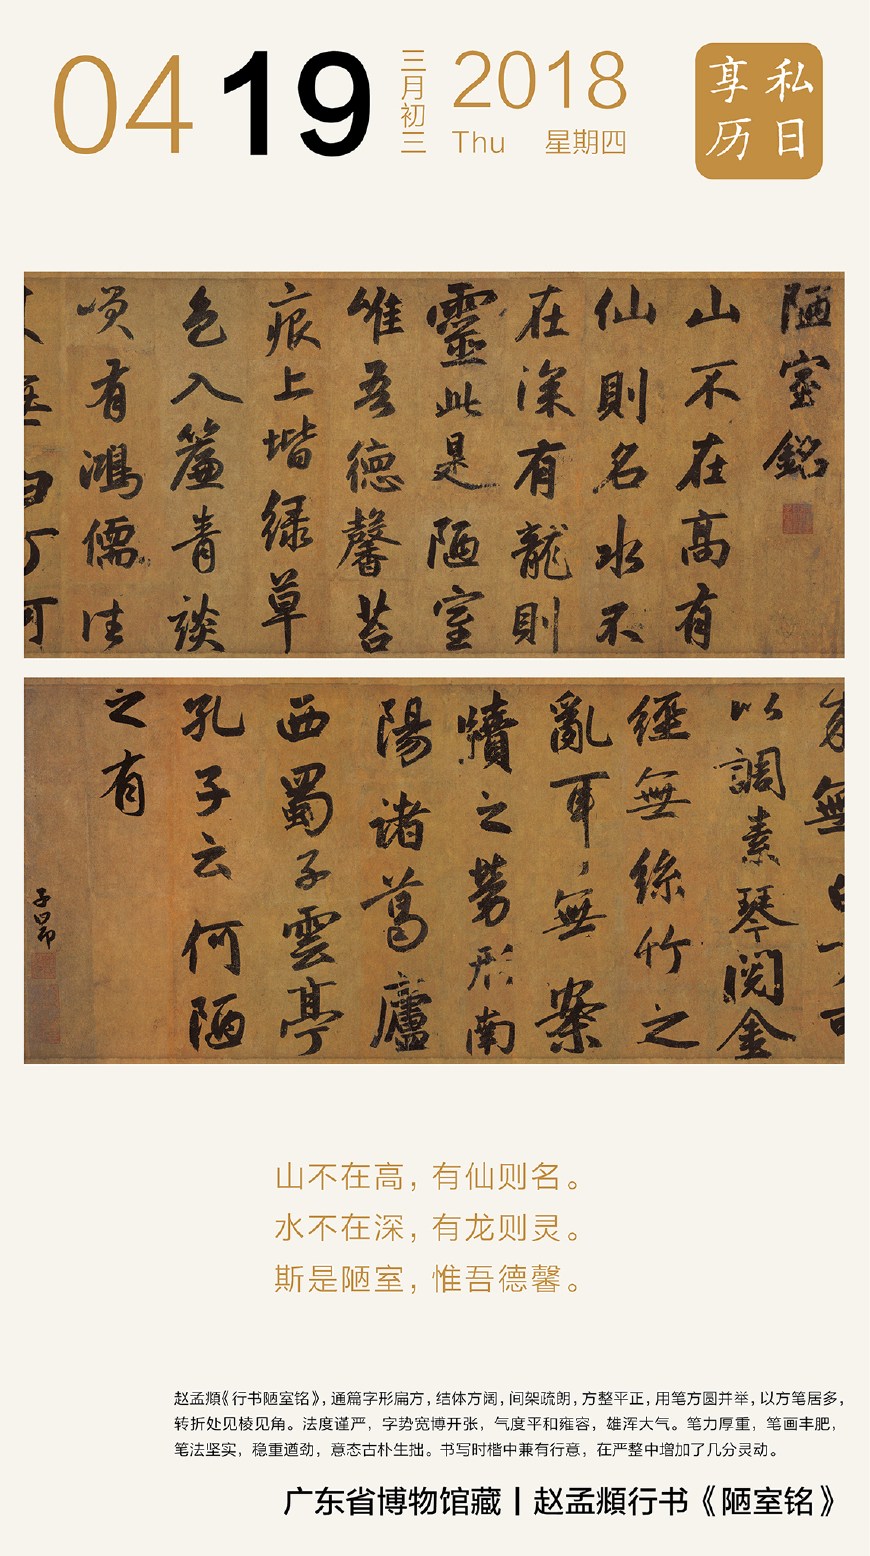 04 19
三月初三
2018
Thu 星期四
私享
日历
陋室銘
山不在高有
仙則名水不
在深有龍則
靈此是陋室
惟吾德馨苔
痕上堦緑草
色入簾青談
咲有鴻儒往
以調素琴閱金
經無絲竹之
亂耳無案
牘之勞形南
陽諸葛廬
西蜀子雲亭
孔子云何陋
之有
子昂
山不在高，有仙则名。
水不在深，有龙则灵。
斯是陋室，惟吾德馨。
赵孟頫《行书陋室铭》，通篇字形扁方，结体方阔，间架疏朗，方整平正，用笔方圆并举，以方笔居多，
转折处见棱见角。法度谨严，字势宽博开张，气度平和雍容，雄浑大气。笔力厚重，笔画丰肥，
笔法坚实，稳重遒劲，意态古朴生拙。书写时楷中兼有行意，在严整中增加了几分灵动。
广东省博物馆藏丨赵孟頫行书《陋室铭》